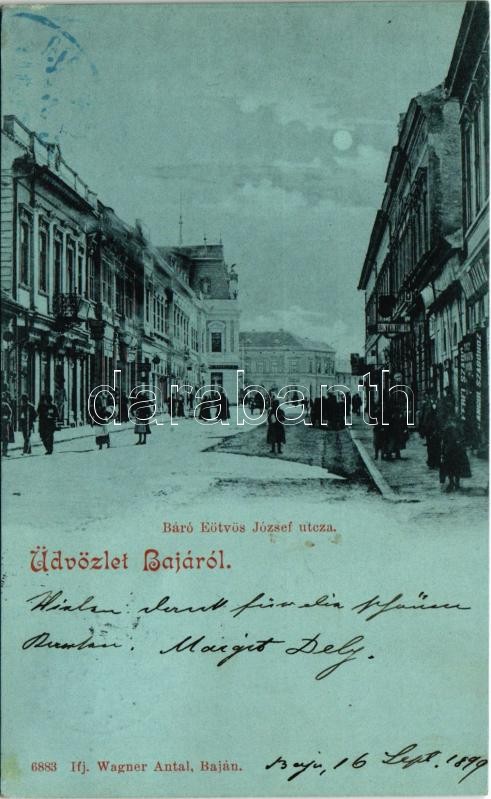 darabanth
Báró Eötvös József utcza.
Üdvözlet Bajáról.
Vielen dank für die schönen
Karten. Margit Dely.
6883 Ifj. Wagner Antal, Baján.
Baja, 16 Sept. 1899